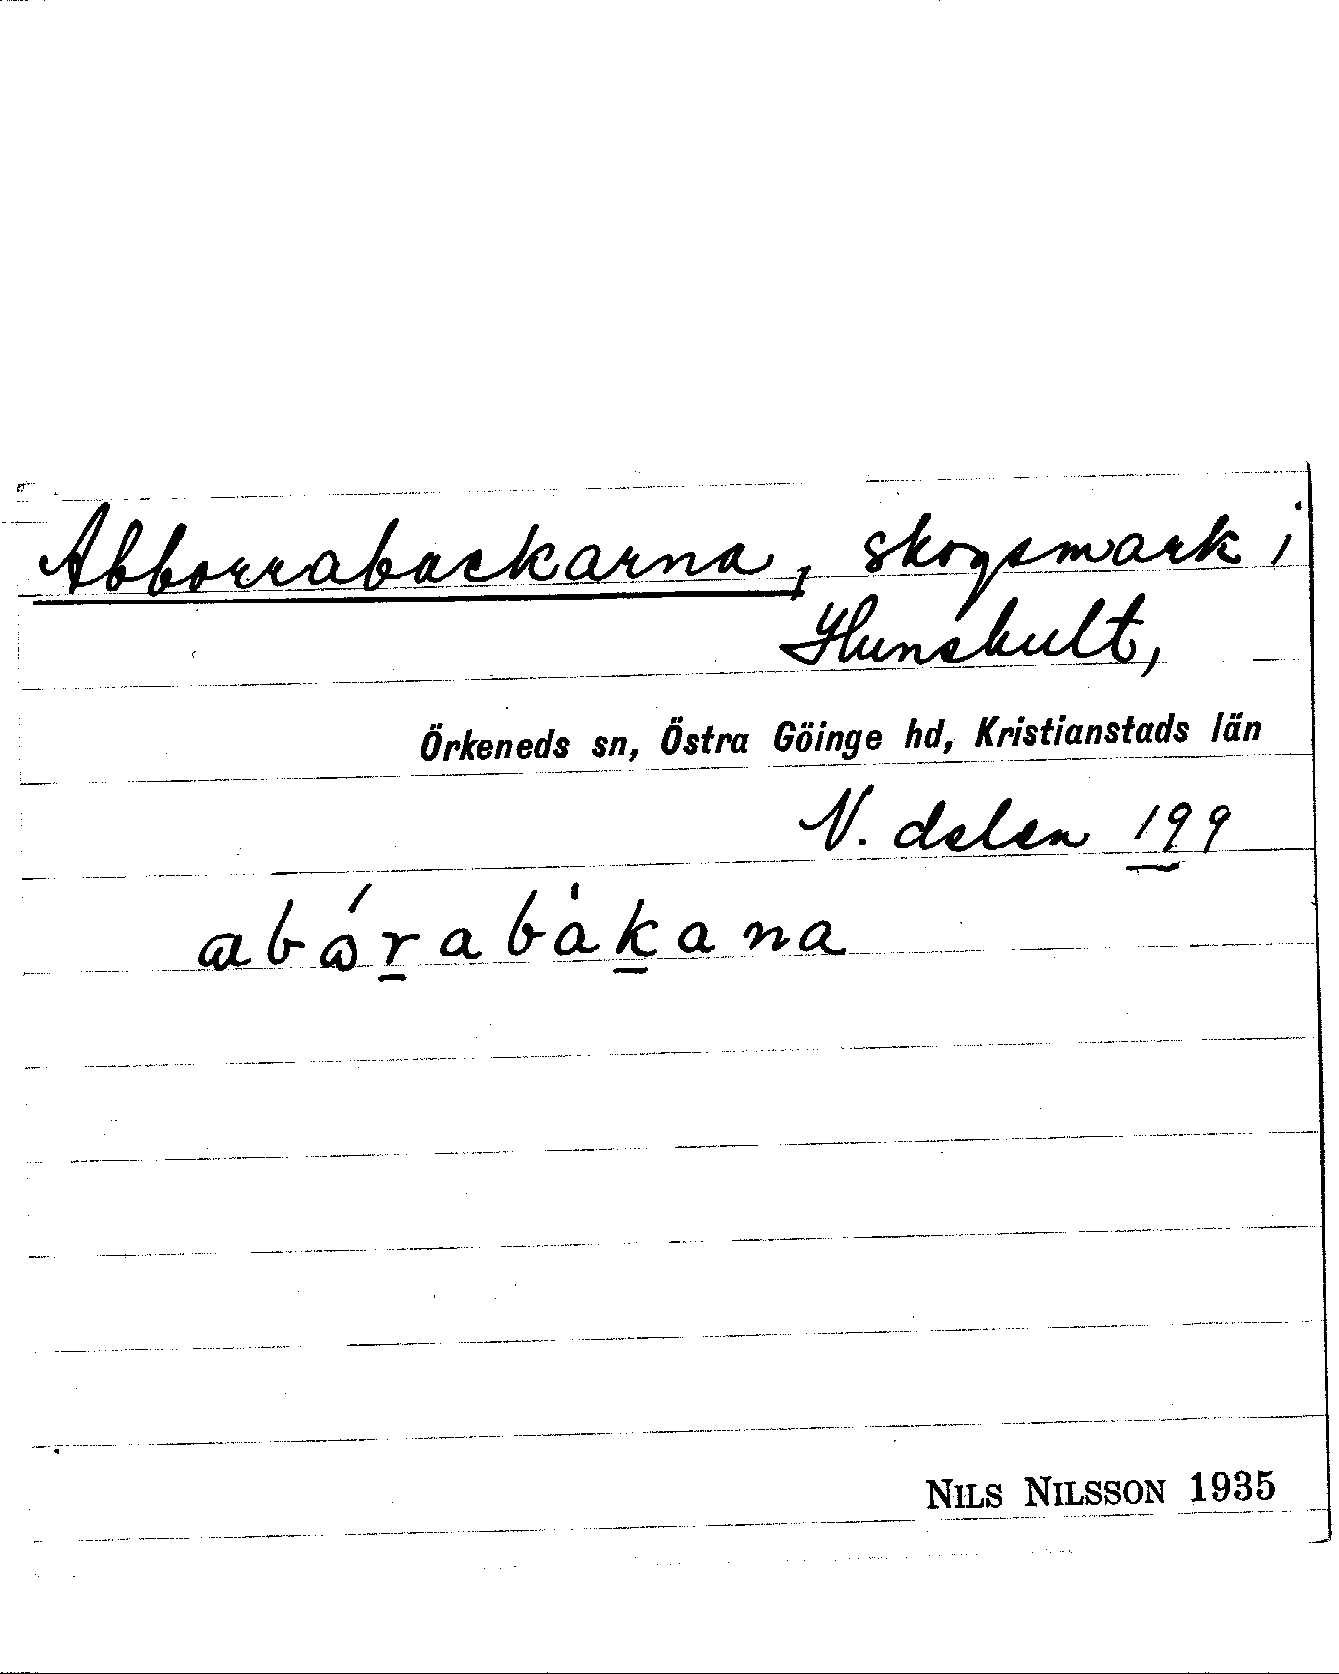 Abborrabackarna, skogsmark i
Hunshult,
Örkeneds sn, Östra Göinge hd, Kristianstads län
N. delen 199
abárabàkana
NILS NILSSON 1935